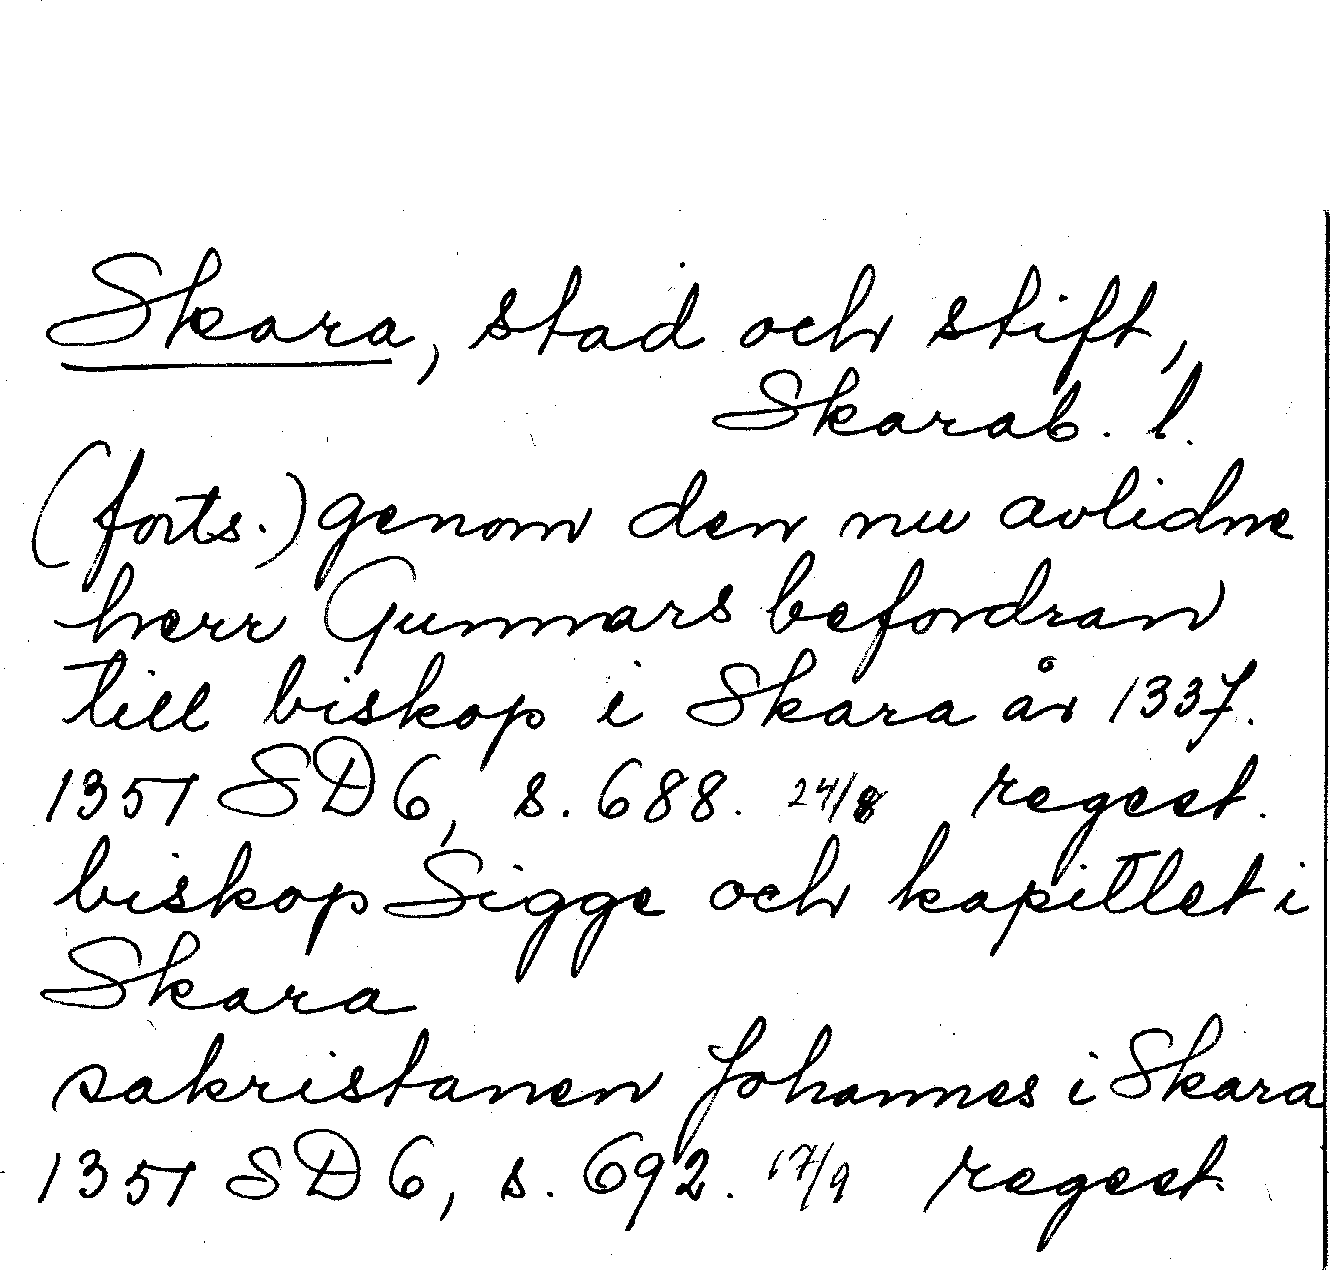 Skara, stad och stift,
Skarab. l.
(forts.) genom den nu avlidne
herr Gunnars befordran
till biskop i Skara år 1337.
1351 SD 6, s. 688. 24/8 regest.
biskop Sigge och kapitlet i
Skara
sakristanen Johannes i Skara
1351 SD 6, s. 692. 17/9 regest.